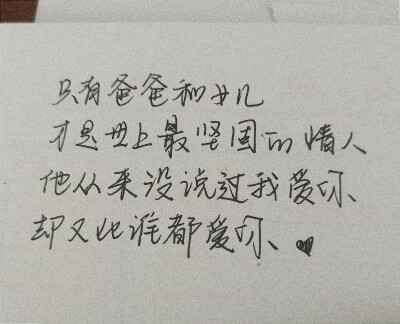 只有爸爸和女儿
才是世上最坚固的情人
他从来没说过我爱你、
却又比谁都爱你、♥